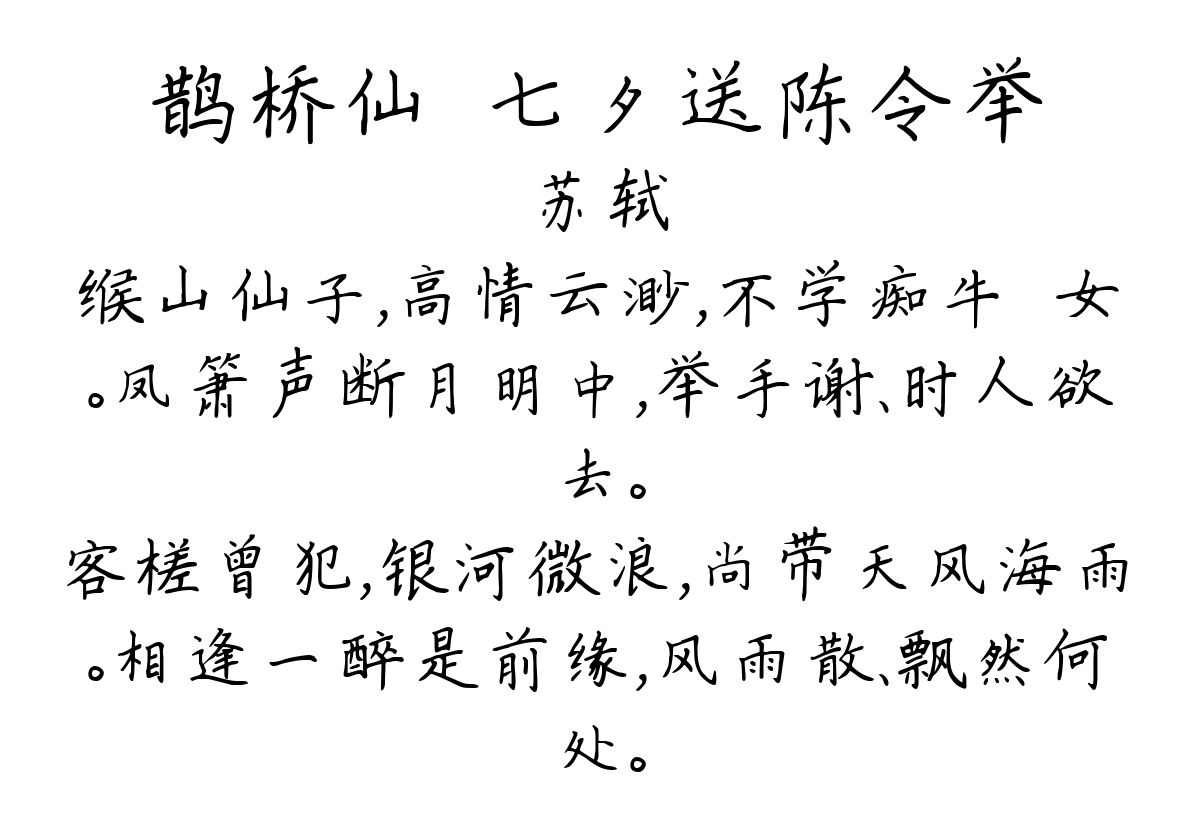 鹊桥仙 七夕送陈令举
苏轼
缑山仙子,高情云渺,不学痴牛 女
。凤箫声断月明中,举手谢、时人欲
去。
客槎曾犯,银河微浪,尚带天风海雨
。相逢一醉是前缘,风雨散、飘然何
处。